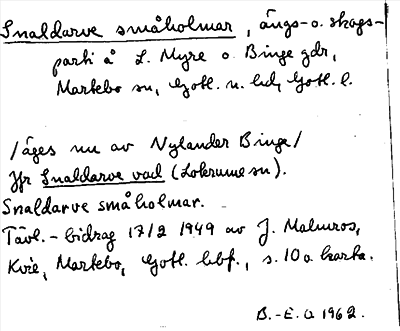 Snaldarve småholmar, ängs- o. skogs-
parti å L. Myre o. Binge gdr,
Martebo sn, Gotl. n. hd, Gotl. l.
/äges nu av Nylander Binge/
Jfr Snaldarve vad (Lokrume sn).
Snaldarve småholmar.
Tävl.-bidrag 17/2 1949 av J. Malmros,
Kvie, Martebo, Gotl. hbf., s. 10 o karta.
B.-E. O 1962.